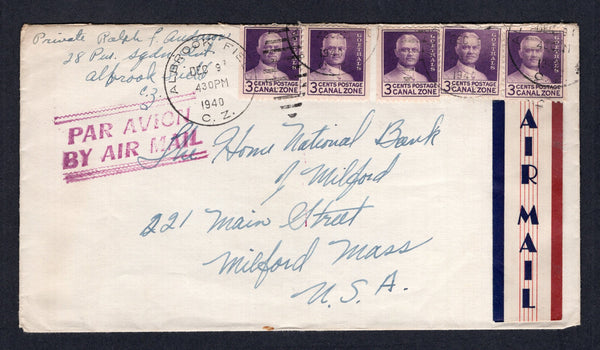 Private Ralph L. Anderson
28 Pur. Sqdn
Albrook Field
C.Z.
ALBROOK FIELD
DEC 9
430PM
1940
C. Z.
GOETHALS
3 CENTS POSTAGE
CANAL ZONE
GOETHALS
3 CENTS POSTAGE
CANAL ZONE
GOETHALS
3 CENTS POSTAGE
CANAL ZONE
GOETHALS
3 CENTS POSTAGE
CANAL ZONE
GOETHALS
3 CENTS POSTAGE
CANAL ZONE
PAR AVION
BY AIR MAIL
The Home National Bank
of Milford
221 Main Street
Milford Mass
U.S.A.
AIR MAIL